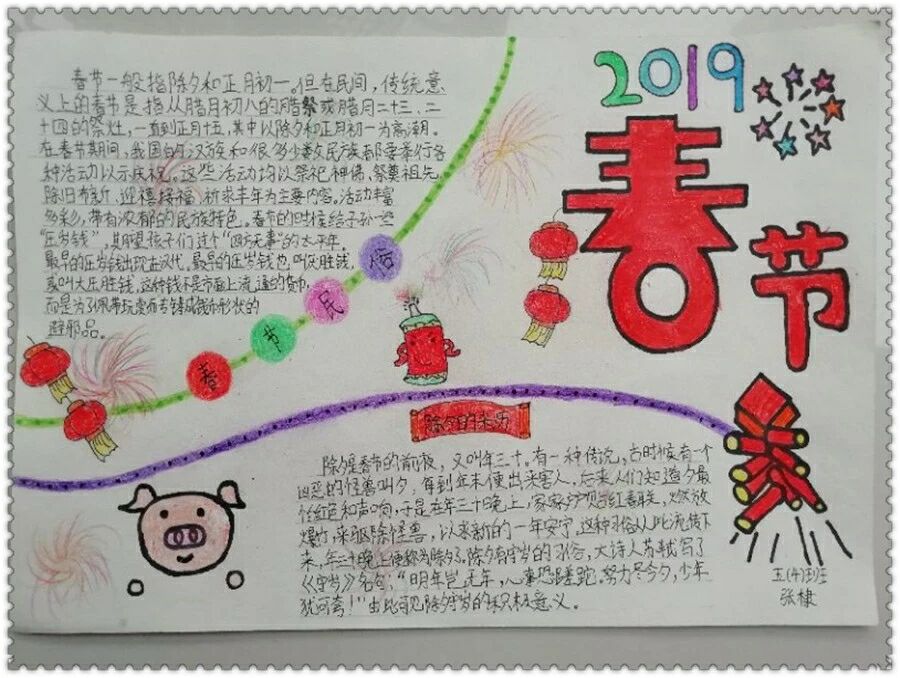 2019
春节
春节一般指除夕和正月初一。但在民间，传统意
义上的春节是指从腊月初八的腊祭或腊月二十三、二
十四的祭灶，一直到正月十五，其中以除夕和正月初一为高潮。
在春节期间，我国的汉族和很多少数民族都要举行各
种活动以示庆祝。这些活动均以祭祀神佛、祭奠祖先、
除旧布新、迎禧接福、祈求丰年为主要内容。活动丰富
多彩，带有浓郁的民族特色。春节的时候给子孙一些
“压岁钱”，期望孩子们过个“四方无事”的太平年。
最早的压岁钱出现于汉代。最早的压岁钱也叫厌胜钱，
或叫大压胜钱，这种钱不是市面上流通的货币，
而是为了佩带玩赏而专铸成钱币形状的
避邪品。
春节民俗
除夕的来历
除夕是春节的前夜，又叫年三十。有一种传说，古时候有一个
凶恶的怪兽叫夕，每到年末便出来害人，后来人们知道夕最
怕红色和声响，于是在年三十晚上，家家户户贴红春联，燃放
爆竹，来驱除怪兽，以求新的一年安宁，这种习俗从此流传下
来，年三十晚上便称为除夕了。除夕有守岁的习俗，大诗人苏轼写了
《守岁》名句：“明年岂无年，心事恐蹉跎，努力尽今夕，少年
犹可夸！”由此可见除夕守岁的积极意义。
五(4)班
张棣